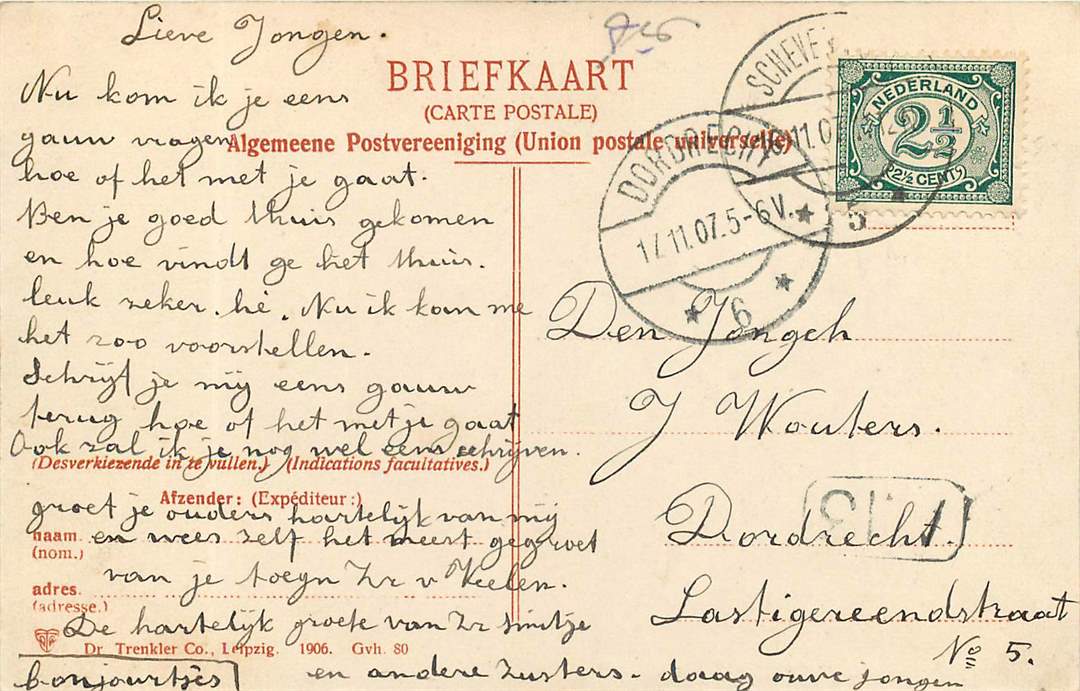 Lieve Jongen.
Nu kom ik je eens
gauw vragen
hoe of het met je gaat.
Ben je goed thuis gekomen
en hoe vindt ge het thuis.
leuk zeker, hé. Nu ik kan me
het zoo voorstellen.
Schrijf je mij eens gauw
terug hoe of het met je gaat
Ook zal ik je nog wel eens schrijven.
groet je ouders hartelijk van mij
en wees zelf het meest gegroet
van je Zr v Keelen.
De hartelijk groete van Zr Smitje
en andere Zusters. daag ouwe jongen
bonjourtjes
BRIEFKAART
(CARTE POSTALE)
Algemeene Postvereeniging (Union postale universelle)
(Desverkiezende in te vullen.) (Indications facultatives.)
Afzender: (Expéditeur:)
naam
(nom.)
adres.
(adresse.)
Dr. Trenkler Co., Leipzig. 1906. Gvh. 80
NEDERLAND
2½
(2½ CENT)
SCHEVE
11.07
5
DORDRECHT
11.07. 5-6 V.
6
Den Jongeh
J Wouters.
Dordrecht.
Lastigereendstraat
No 5.